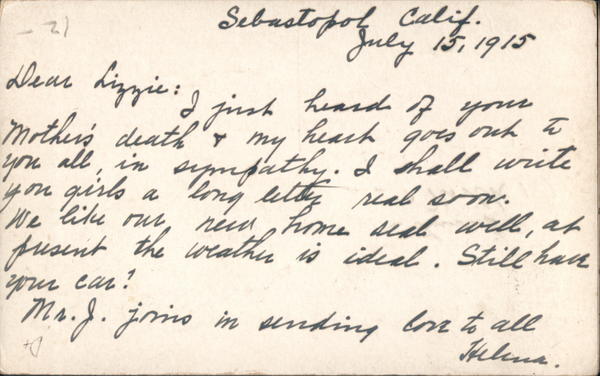 - 21
Sebastopol Calif.
July 15, 1915
Dear Lizzie:
I just heard of your
Mother's death & my heart goes out to
you all, in sympathy. I shall write
you girls a long letter real soon.
We like our new home real well, at
present the weather is ideal. Still have
your car?
Mr. J. joins in sending love to all
Helena.